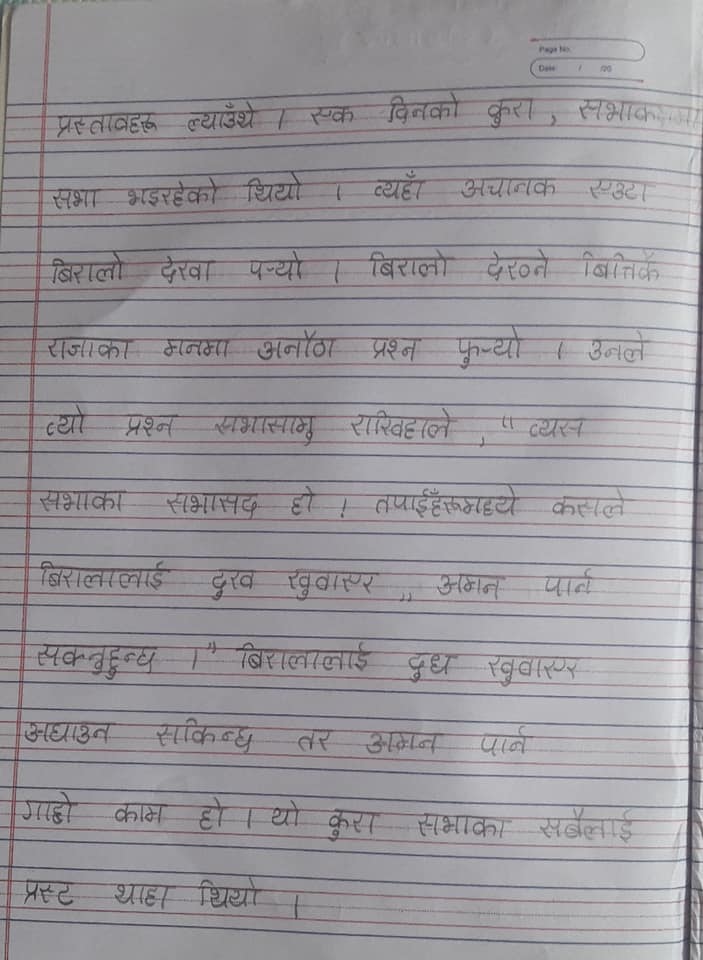 Page No.
Date / /20
प्रस्तावहरू ल्याउँथे । एक दिनको कुरा , सभाकक्षमा
सभा भइरहेको थियो । त्यहाँ अचानक एउटा
बिरालो देखा पर्‍यो । बिरालो देख्ने बित्तिकै
राजाका मनमा अनौठा प्रश्न फुर्‍यो । उनले
त्यो प्रश्न सभासामु राखिहाले , " त्यस
सभाका सभासद हो ! तपाईहँरूमध्ये कसले
बिरालालाई दुख खुवाएर ,, अमन पार्न
सक्नुहुन्छ ।" बिरालालाई दुध खुवाएर
अघाउन सकिन्छ तर अमन पार्न
गाह्रो काम हो । यो कुरा सभाका सबैलाई
प्रस्ट थाहा थियो ।